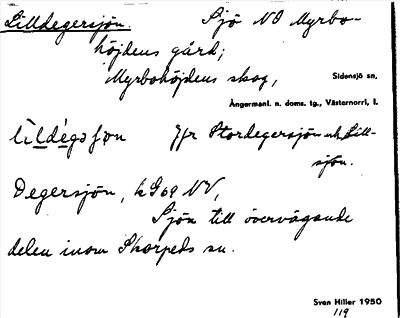 Lilldegersjön. Sjö NO Myrbo-
höjdens gård;
Myrbohöjdens skog, Sidensjö sn,
Ångermanl. n. doms. tg., Västernorrl. l.
Jfr Stordegersjön o. Lill-
sjön.
Degersjön, k G69 NV,
Sjön till övervägande
delen inom Skorpeds sn.
Sven Hiller 1950
119